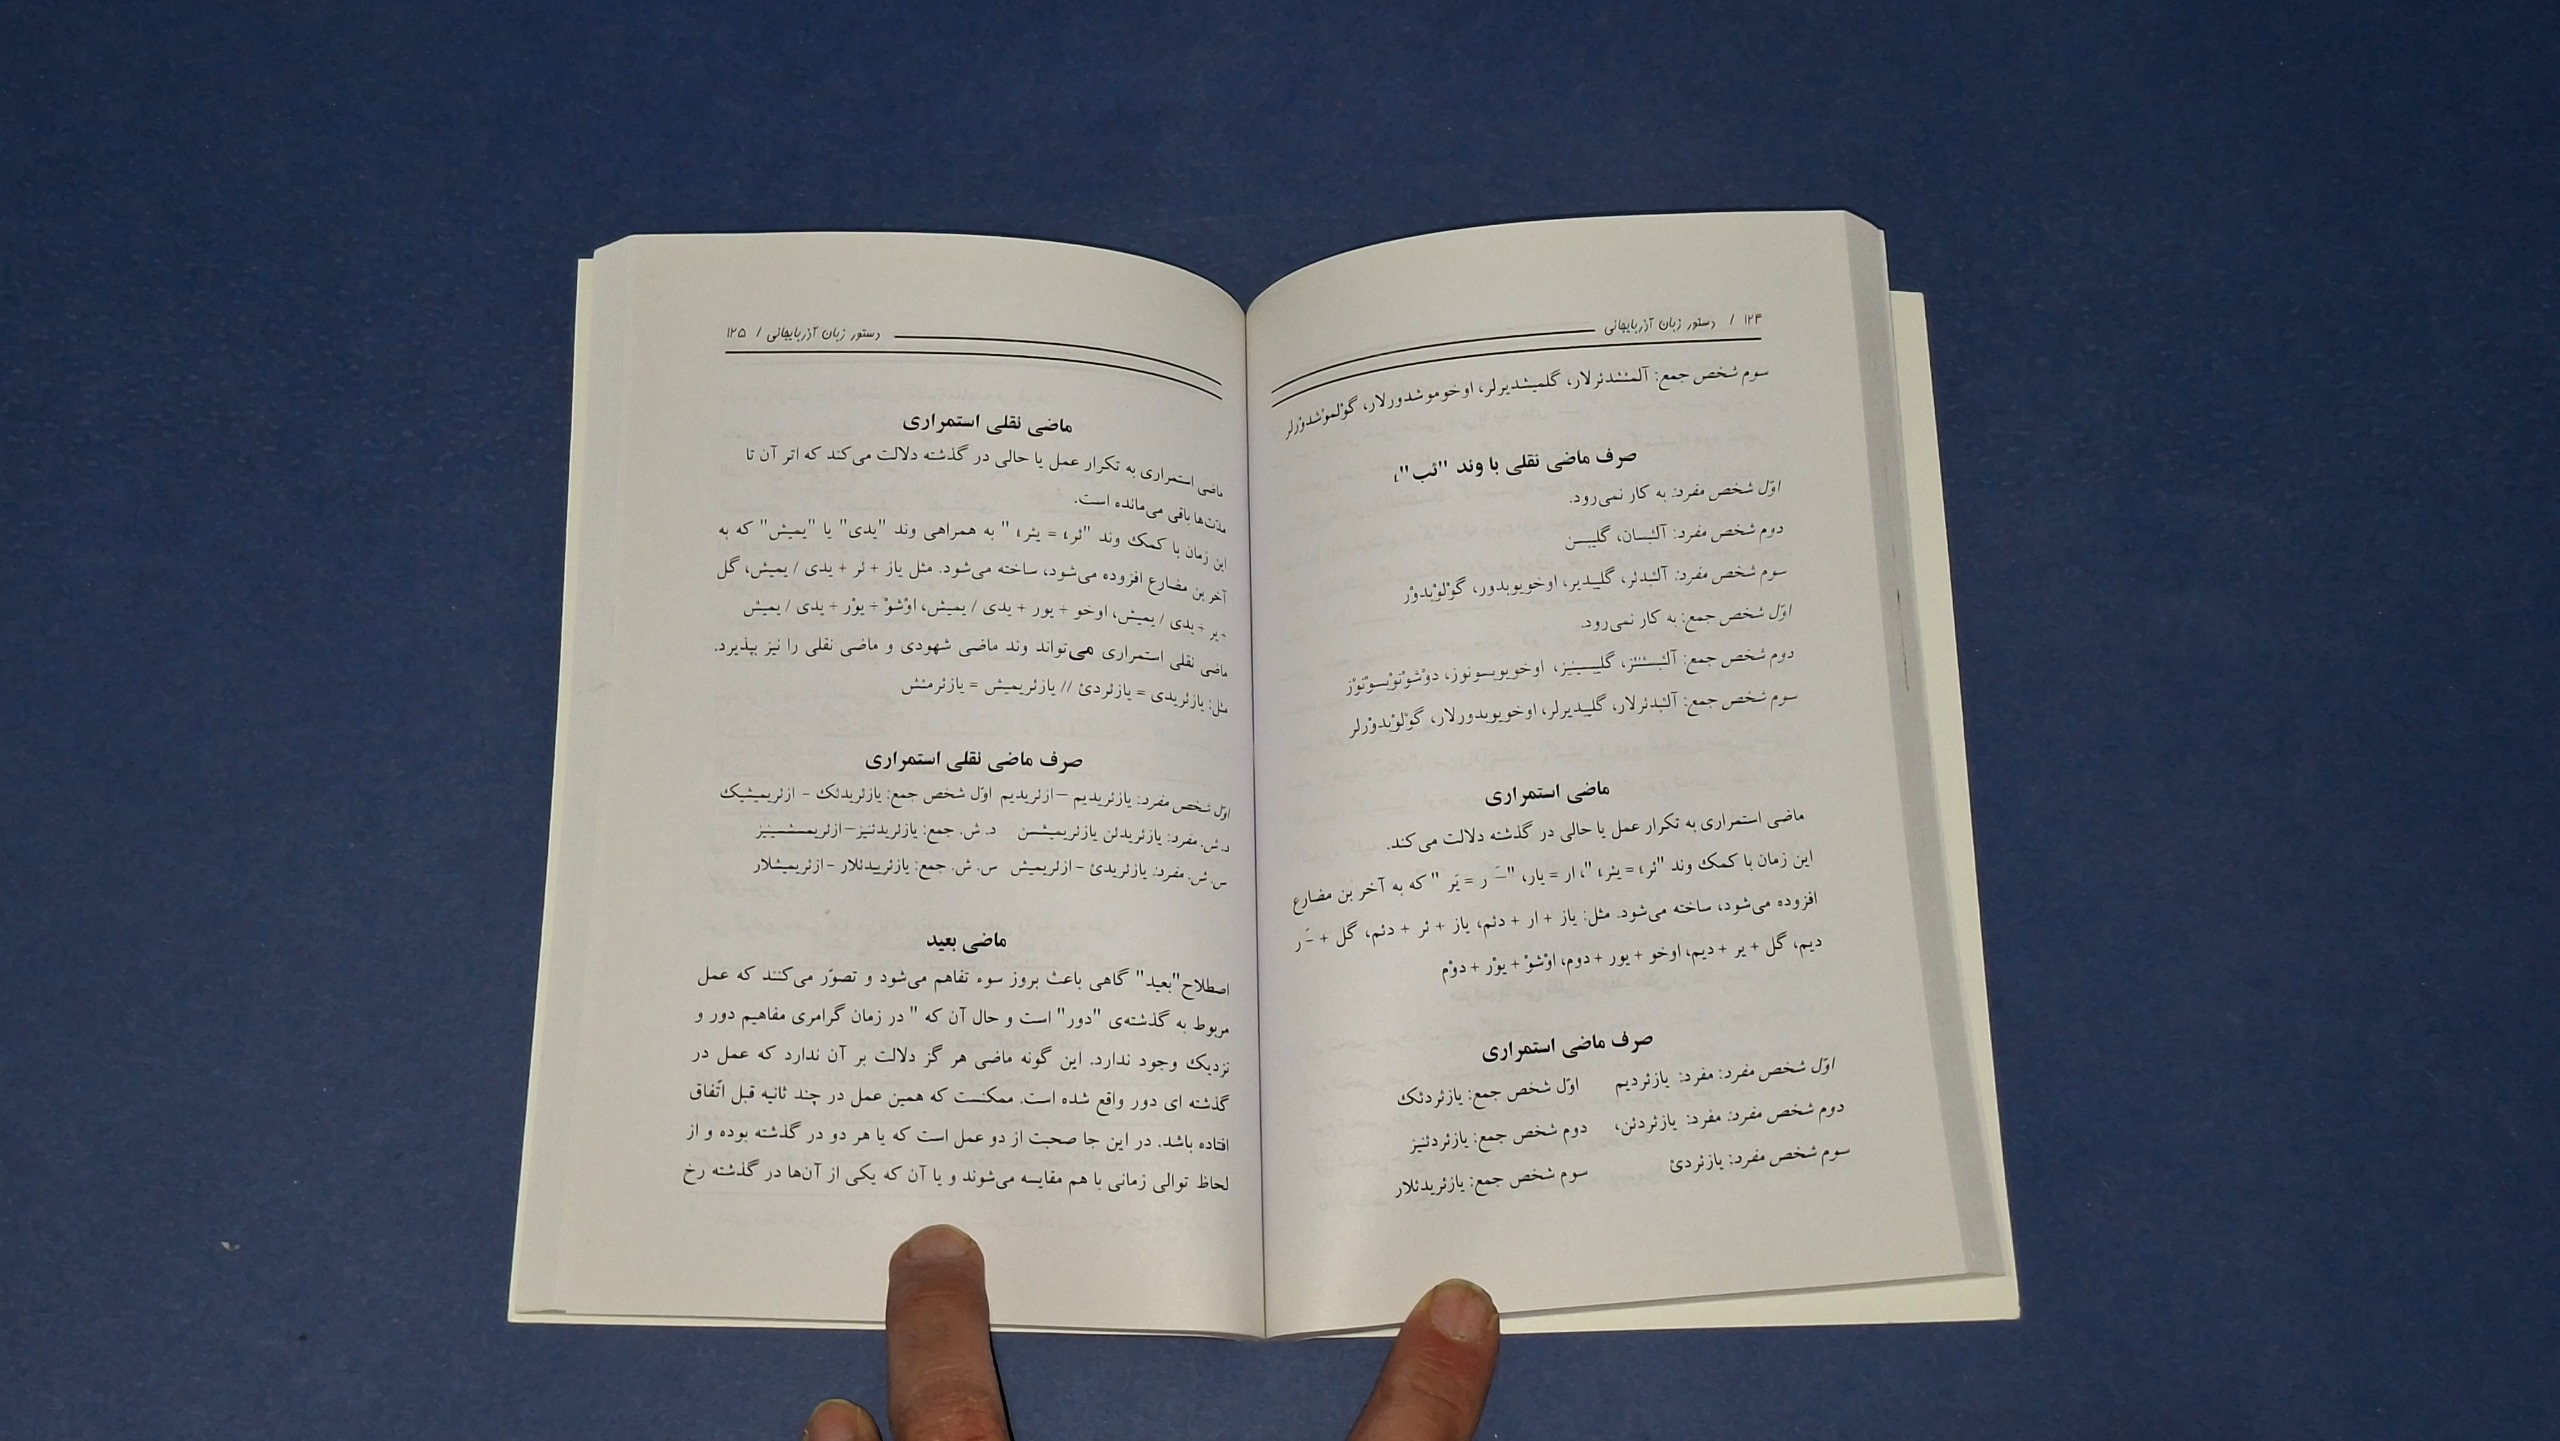 ۱۲۴ / دستور زبان آذربایجانی
سوم شخص جمع: آلمئشدئرلار، گلمیشدیرلر، اوخوموشدورلار، گۆلمۆشدۆرلر
صرف ماضی نقلی با وند "ئب"٤
اوّل شخص مفرد: به کار نمی‌رود.
دوم شخص مفرد: آلئبسان، گلیبسن
سوم شخص مفرد: آلئبدئر، گلیبدیر، اوخویوبدور، گۆلۆبدۆر
اوّل شخص جمع: به کار نمی‌رود.
دوم شخص جمع: آلئبسئنئز، گلیبسینیز، اوخویوبسونوز، دۆشۆنۆبسۆنۆز
سوم شخص جمع: آلئبدئرلار، گلیبدیرلر، اوخویوبدورلار، گۆلۆبدۆرلر
ماضی استمراری
ماضی استمراری به تکرار عمل یا حالی در گذشته دلالت می کند.
این زمان با کمک وند "ئر٤ = یئر٤ "، ار = یار، "ـَ ر = یَر " که به آخر بن مضارع
افزوده می‌شود، ساخته می‌شود. مثل: یاز + ار + دئم، یاز + ئر + دئم، گل + ـَ ر
دیم، گل + یر + دیم، اوخو + یور + دوم، اۆشۆ + یۆر + دۆم
صرف ماضی استمراری
اوّل شخص مفرد: مفرد: یازئردیم اوّل شخص جمع: یازئردئک
دوم شخص مفرد: مفرد: یازئردئن، دوم شخص جمع: یازئردئنیز
سوم شخص مفرد: یازئردئ سوم شخص جمع: یازئریدئلار
دستور زبان آذربایجانی / ۱۲۵
ماضی نقلی استمراری
ماضی استمراری به تکرار عمل یا حالی در گذشته دلالت می‌کند که اثر آن تا
مدّت‌ها باقی می‌مانده است.
این زمان با کمک وند "ئر٤ = یئر٤ " به همراهی وند "یدی" یا "یمیش" که به
آخر بن مضارع افزوده می‌شود، ساخته می‌شود. مثل یاز + ئر + یدی / یمیش، گل
+یر +یدی / یمیش، اوخو + یور + یدی / یمیش، اۆشۆ + یۆر + یدی / یمیش
ماضی نقلی استمراری می‌تواند وند ماضی شهودی و ماضی نقلی را نیز بپذیرد.
مثل: یازئریدی = یازئردئ // یازئریمیش = یازئرمئش
صرف ماضی نقلی استمراری
اوّل شخص مفرد: یازئریدیم –ازئریدیم اوّل شخص جمع: یازئریدئک - ازئریمیشیک
د. ش. مفرد: یازئریدئن یازئریمیشسن د. ش. جمع: یازئریدئنیز–ازئریمیشسینیز
س. ش. مفرد: یازئریدئ -ازئریمیش س. ش. جمع: یازئرییدئلار -ازئریمیشلار
ماضی بعید
اصطلاح"بعید" گاهی باعث بروز سوء تفاهم می‌شود و تصوّر می‌کنند که عمل
مربوط به گذشته‌ی "دور" است و حال آن که " در زمان گرامری مفاهیم دور و
نزدیک وجود ندارد. این گونه ماضی هر گز دلالت بر آن ندارد که عمل در
گذشته ای دور واقع شده است. ممکنست که همین عمل در چند ثانیه قبل اتّفاق
افتاده باشد. در این جا صحبت از دو عمل است که یا هر دو در گذشته بوده و از
لحاظ توالی زمانی با هم مقایسه می‌شوند و یا آن که یکی از آن‌ها در گذشته رخ